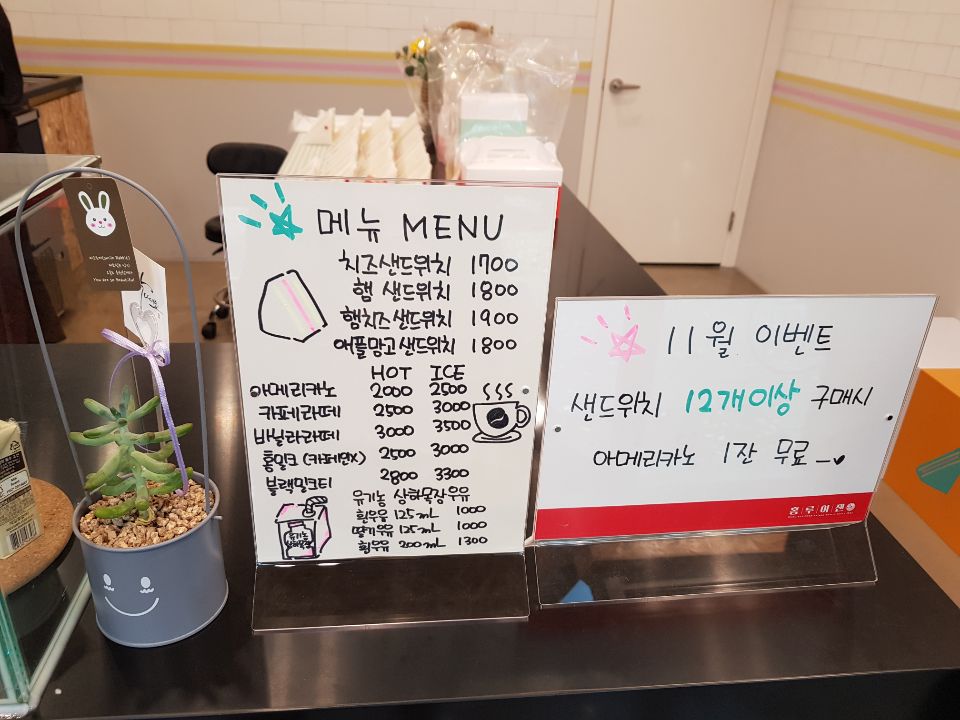 메뉴 MENU
치즈샌드위치 1700
햄 샌드위치 1800
햄치즈샌드위치 1900
애플망고샌드위치 1800
HOT ICE
아메리카노 2000 2500
카페라떼 2500 3000
바닐라라떼 3000 3500
홍밀크(카페인X) 2500 3000
블랙밀크티 2800 3300
유기농 상하목장우유
흰우유 125mL 1000
딸기우유 125mL 1000
흰우유 200mL 1300
11월 이벤트
샌드위치 12개이상 구매시
아메리카노 1잔 무료
홍루이젠
You are so Beautiful